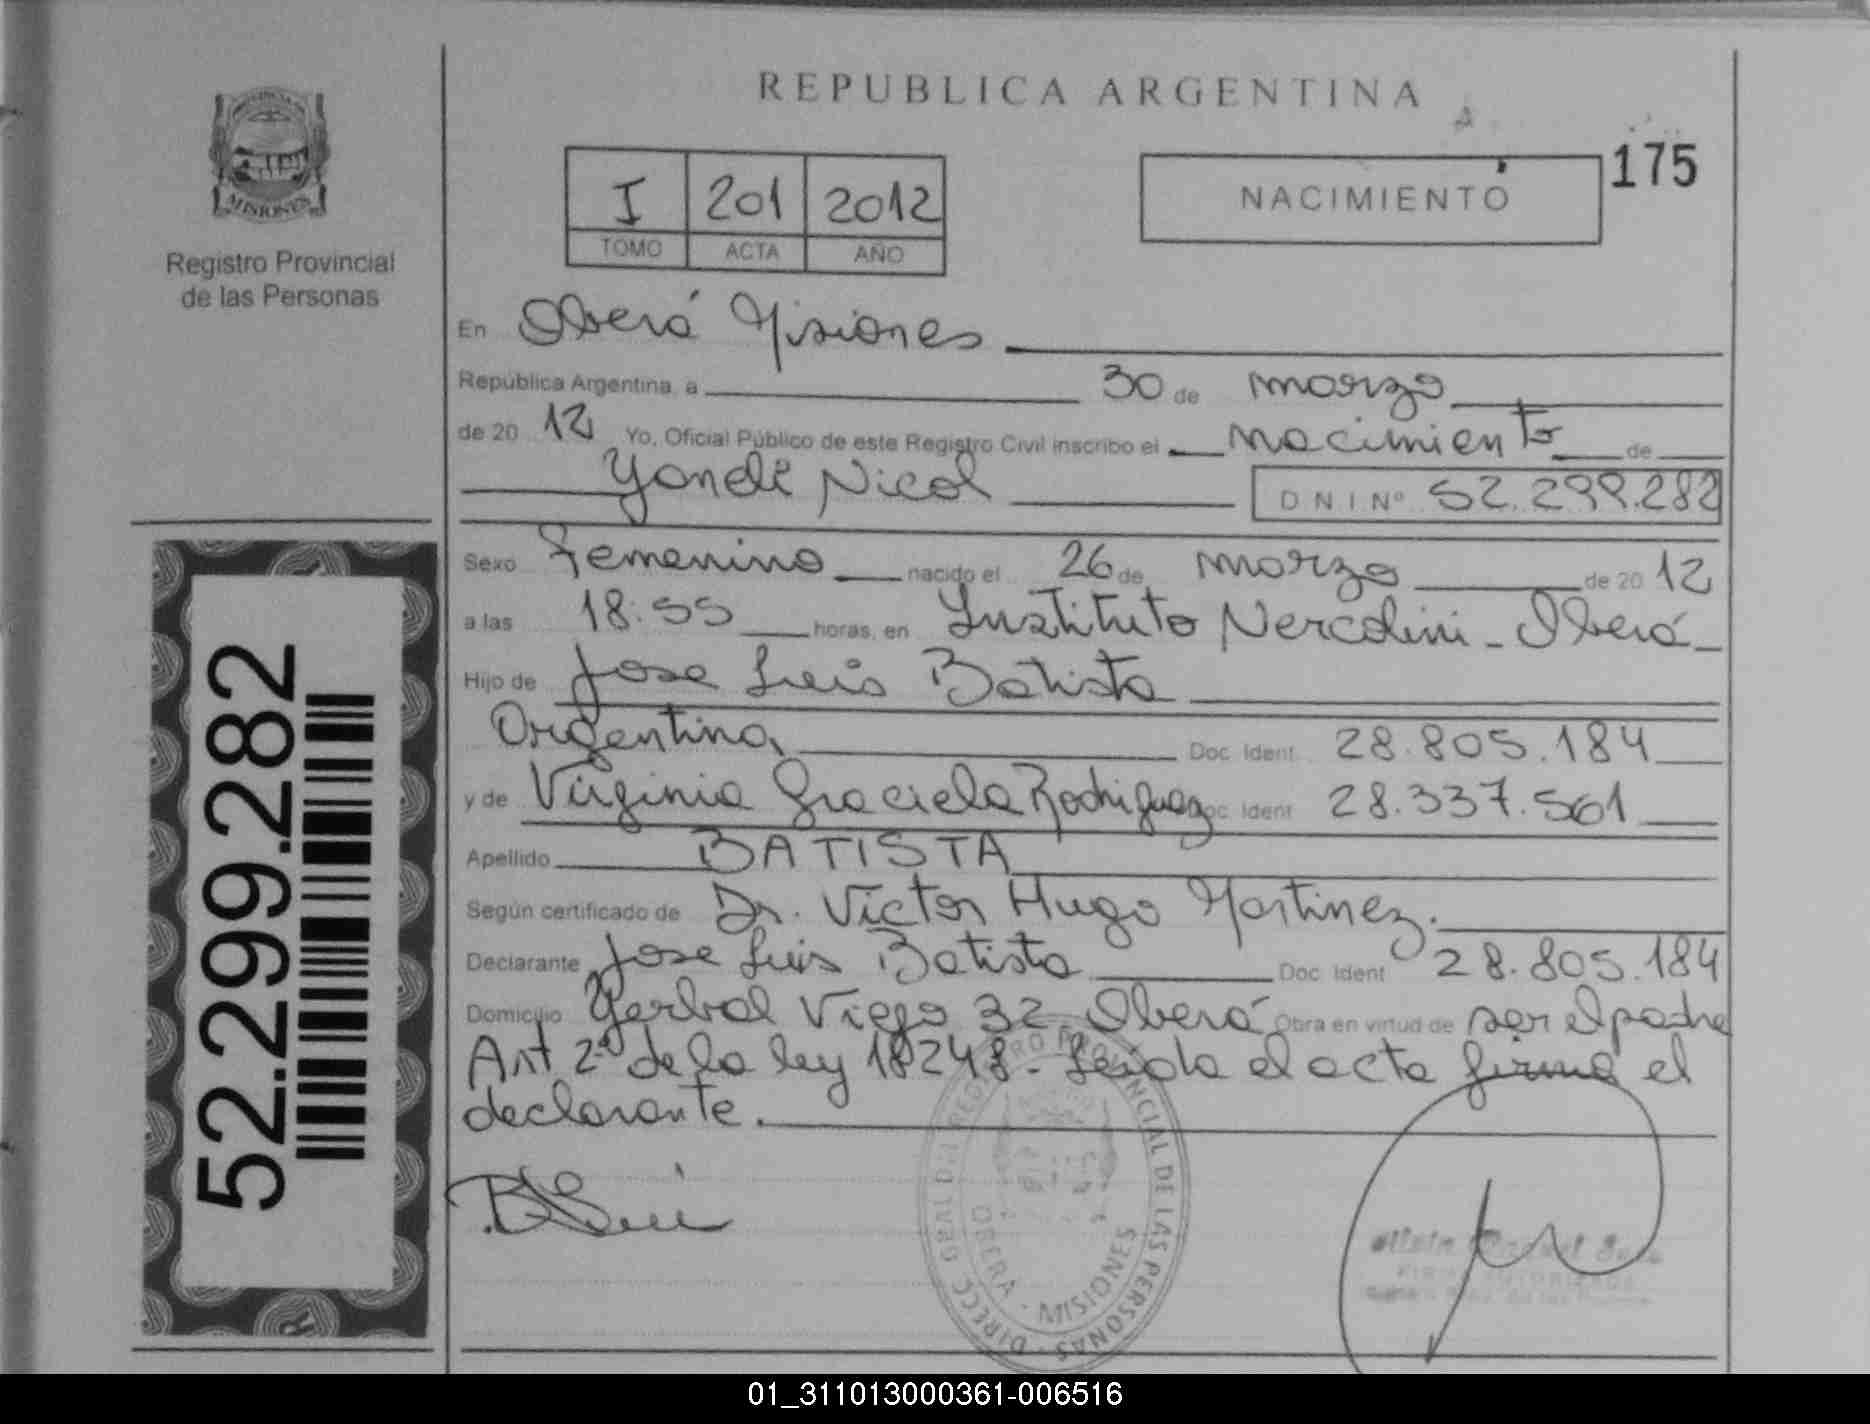 REPUBLICA ARGENTINA
MISIONES
Registro Provincial
de las Personas
I 201 2012
TOMO ACTA AÑO
NACIMIENTO
175
En Oberá Misiones
República Argentina, a 30 de marzo
de 20 12 Yo, Oficial Público de este Registro Civil inscribo el nacimiento de
Nicol
DNI Nº 52.299.282
Sexo Femenino nacido el 26 de marzo de 20 12
a las 18:55 horas, en Instituto Nercolini - Oberá -
Hijo de Jose Luis Batista
Argentina, Doc. Ident. 28.805.184
y de Virginia Graciela Rodriguez Doc. Ident. 28.337.561
Apellido BATISTA
Según certificado de Dr. Victor Hugo Martinez.
Declarante Jose Luis Batista Doc. Ident. 28.805.184
Domicilio Yerbal Viejo 32 Oberá Obra en virtud de ser el padre
Art 2º de la ley 18248. Leida el acta firma el
declarante.
52.299.282
DIRECC GRAL DEL REGISTRO PROVINCIAL DE LAS PERSONAS
OBERA - MISIONES
01_311013000361-006516